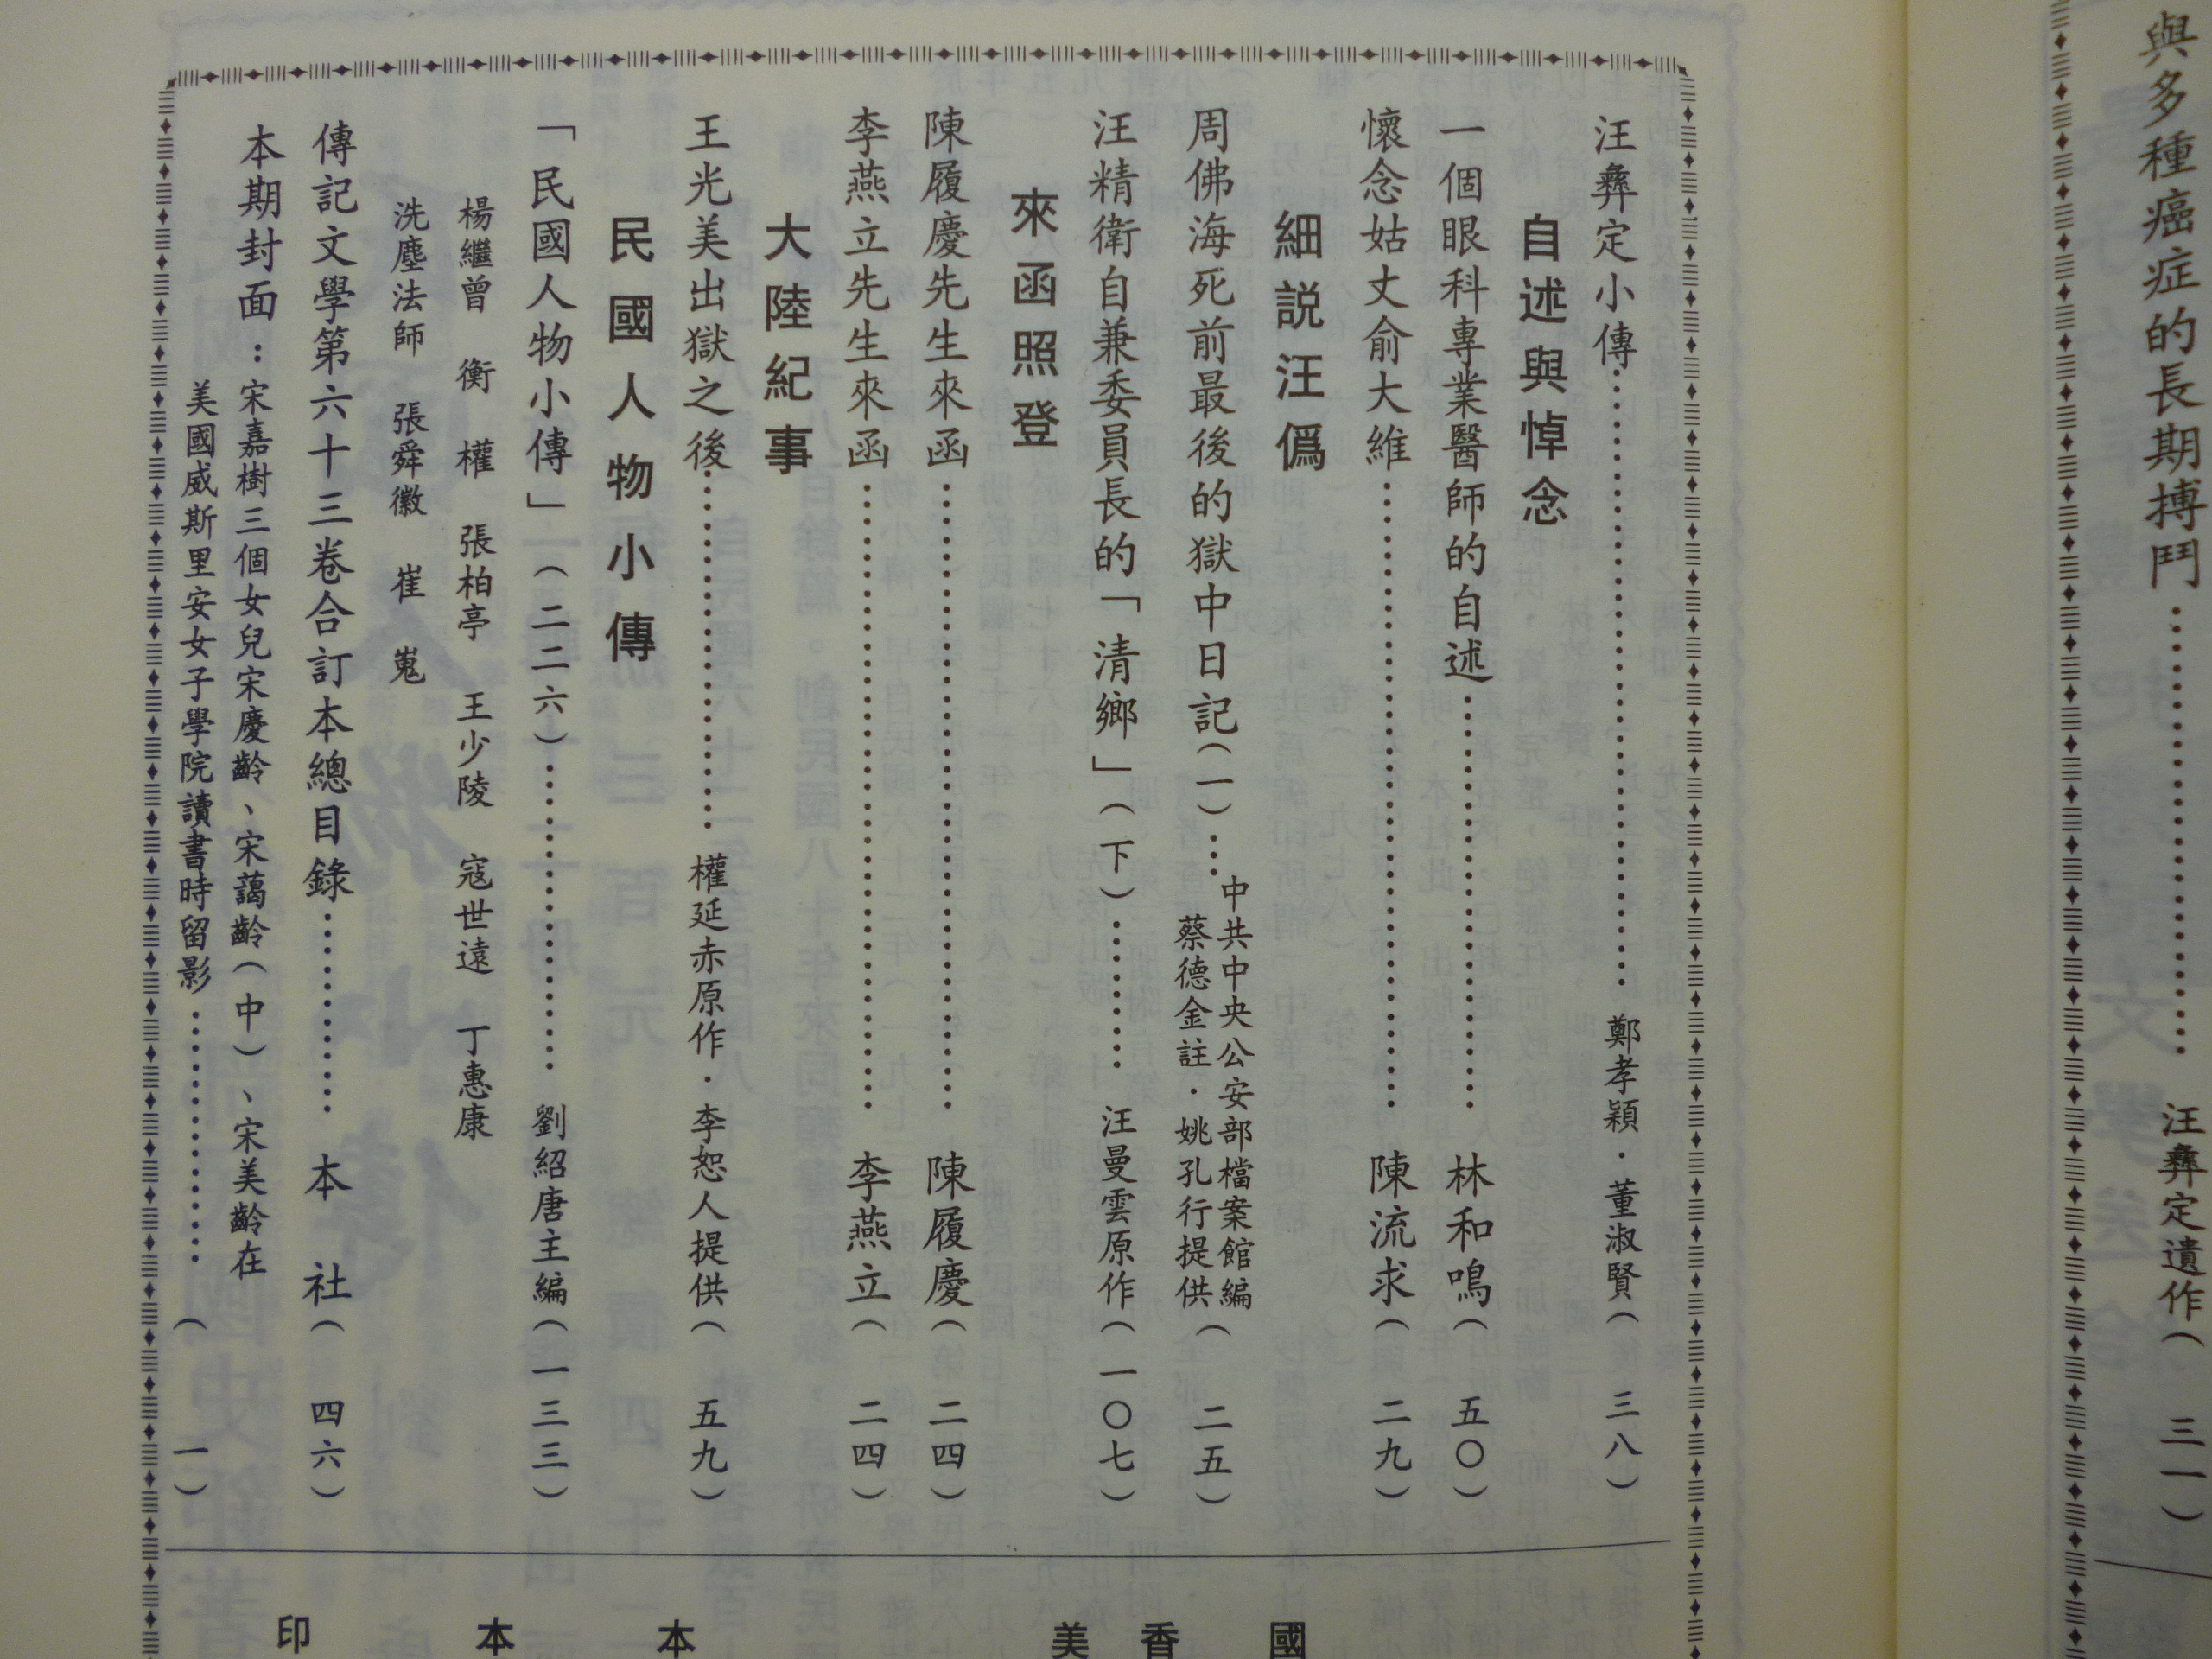 與多種癌症的長期搏鬥⋯⋯⋯⋯⋯⋯汪彝定遺作（三一）
汪彝定小傳⋯⋯⋯⋯⋯⋯鄭孝穎．董淑賢（三八）
自述與悼念
一個眼科專業醫師的自述⋯⋯⋯⋯⋯⋯林和鳴（五〇）
懷念姑丈俞大維⋯⋯⋯⋯⋯⋯陳流求（二九）
細說汪僞
周佛海死前最後的獄中日記（一）⋯中共中央公安部檔案館編
蔡德金註．姚孔行提供（二五）
汪精衛自兼委員長的「清鄉」（下）⋯⋯⋯⋯汪曼雲原作（一〇七）
來函照登
陳履慶先生來函⋯⋯⋯⋯⋯⋯陳履慶（二四）
李燕立先生來函⋯⋯⋯⋯⋯⋯李燕立（二四）
大陸紀事
王光美出獄之後⋯⋯⋯⋯⋯⋯權延赤原作．李恕人提供（五九）
民國人物小傳
「民國人物小傳」（二二六）⋯⋯⋯⋯⋯⋯劉紹唐主編（一三三）
楊繼曾　衡權　張柏亭　王少陵　寇世遠　丁惠康
洗塵法師　張舜徽　崔嵬
傳記文學第六十三卷合訂本總目錄⋯⋯⋯⋯本社（四六）
本期封面：宋嘉樹三個女兒宋慶齡、宋藹齡（中）、宋美齡在
美國威斯里安女子學院讀書時留影⋯⋯⋯⋯（一）
國　香　美　本　本　印